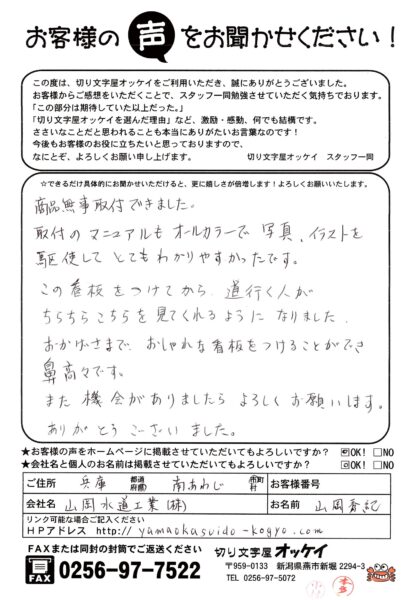 お客様の声をお聞かせください!
この度は、切り文字屋オッケイをご利用いただき、誠にありがとうございました。
お客様からご感想をいただくことで、スタッフ一同勉強させていただく気持ちでおります。
「この部分は期待していた以上だった。」
「切り文字屋オッケイを選んだ理由」など、激励・感動、何でも結構です。
ささいなことだと思われることも本当にありがたいお言葉なのです!
今後もお客様のお役に立ちたいと思っておりますので、
なにとぞ、よろしくお願い申し上げます。 切り文字屋オッケイ スタッフ一同
☆できるだけ具体的にお聞かせいただけると、更に嬉しさが倍増します!よろしくお願いいたします。
商品無事取付できました。
取付のマニュアルもオールカラーで写真、イラストを
駆使してとてもわかりやすかったです。
この看板をつけてから、道行く人が
ちらちらこちらを見てくれるようになりました。
おかげさまで、おしゃれな看板をつけることができ
鼻高々です。
また機会がありましたらよろしくお願いします。
ありがとうございました。
★お客様の声をホームページに掲載させていただいてもよろしいですか? ☑OK! □NO
★会社名と個人のお名前は掲載させていただいてもよろしいですか? ☑OK! □NO
ご住所 兵庫 都道府県 南あわじ 市町村 お客様番号
会社名 山岡水道工業(株) お名前 山岡香紀
リンク可能な場合ご記入ください
HPアドレス http://yamaokasuido-kogyo.com
FAXまたは同封の封筒でご返送ください 切り文字屋オッケイ
FAX 0256-97-7522 〒959-0133 新潟県燕市新堀 2294-3
TEL 0256-97-5072